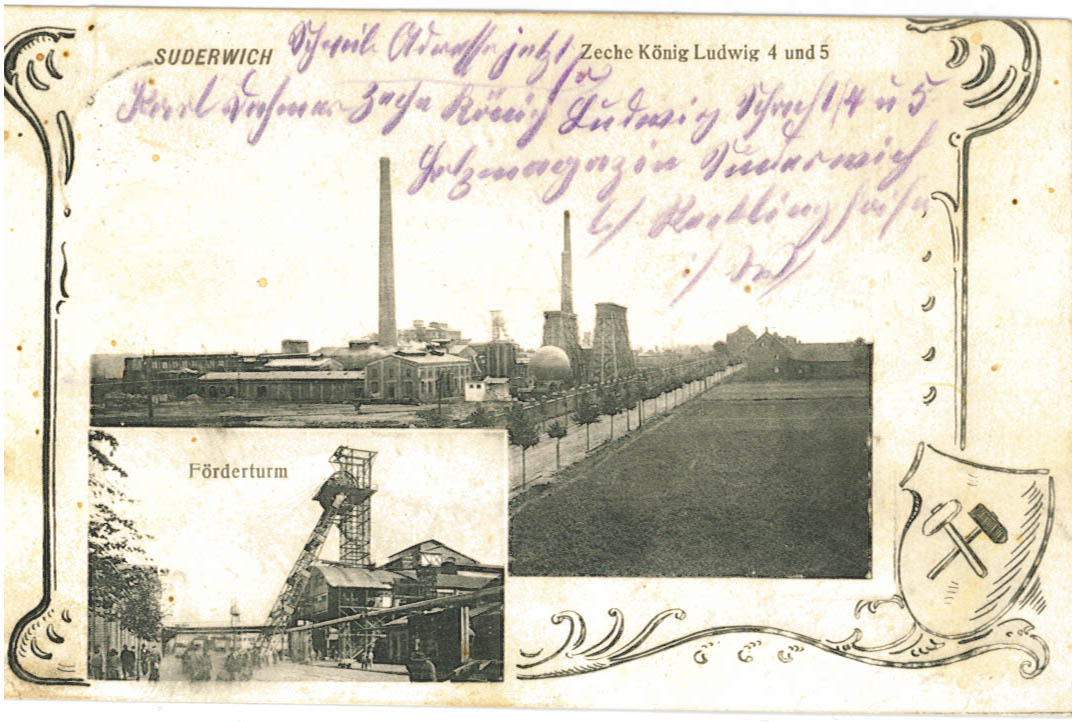 SUDERWICH
Zeche König Ludwig 4 und 5
Schreib Adresse jetzt so
Karl Zeche König Ludwig Schacht 4 u 5
Holzmagazin Suderwich
b/ Recklinghausen
Förderturm